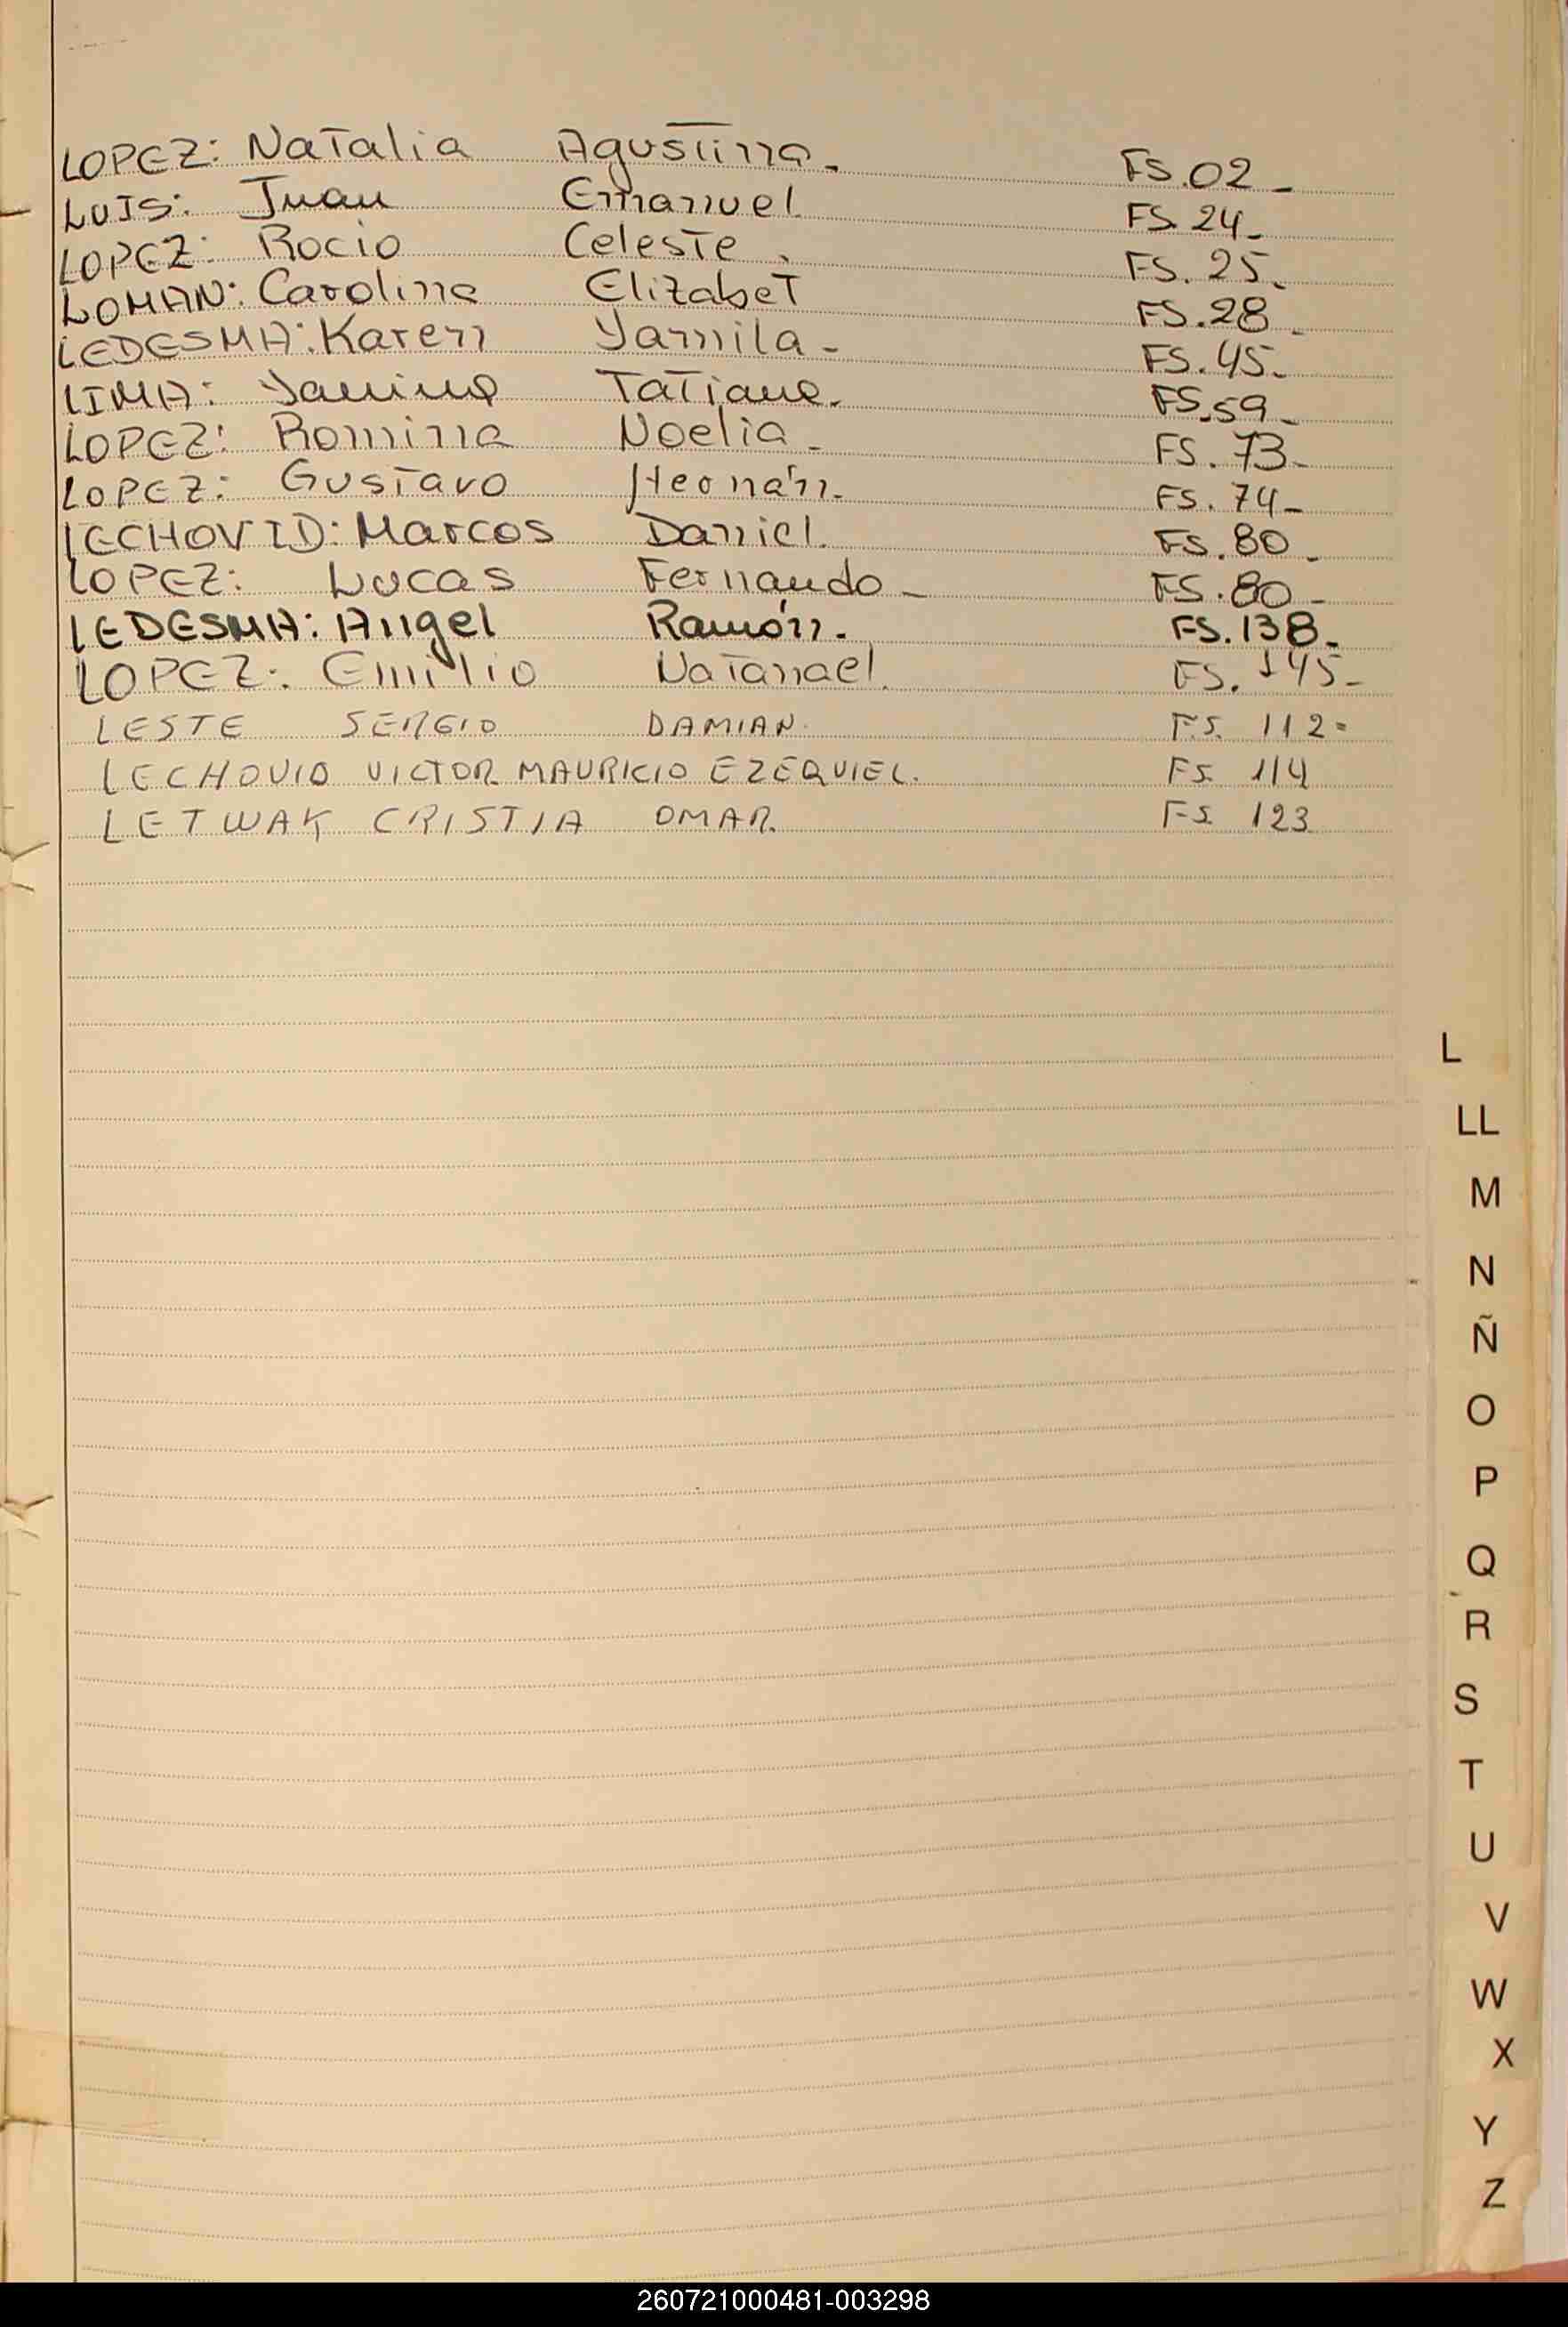 LOPEZ: Natalia Agustina. FS.02-
LUIS: Juan Emanuel. FS.24-
LOPEZ: Rocio Celeste. FS.25-
LOMAN: Carolina Elizabet FS.28-
LEDESMA: Karen Yamila- FS.45-
LIMA: Yanina Tatiana. FS.59-
LOPEZ: Romina Noelia- FS.73-
LOPEZ: Gustavo Hernán. FS.74-
LECHOVID: Marcos Daniel. FS.80-
LOPEZ: Lucas Fernando- FS.80-
LEDESMA: Angel Ramón. FS.138-
LOPEZ: Emilio Natanael. FS.145-
LESTE SERGIO DAMIAN. FS. 112=
LECHOVID VICTOR MAURICIO EZEQUIEL. FS 114
LETWAK CRISTIA OMAR. FS 123
L
LL
M
N
Ñ
O
P
Q
R
S
T
U
V
W
X
Y
Z
260721000481-003298